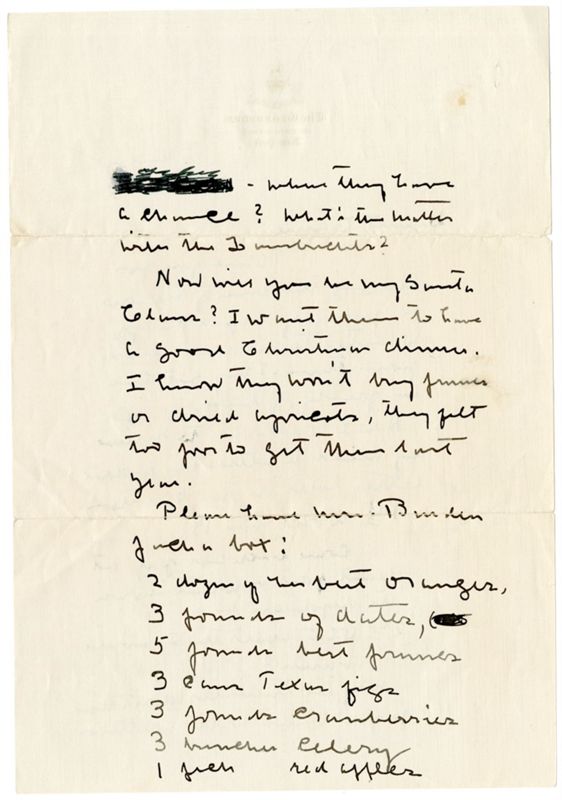 - when they have
a chance? What's the matter
with the
Now will you be my Santa
Claus? I want them to have
a good Christmas dinner.
I know they won't buy prunes
or dried apricots, they felt
too poor to get them last
year.
Please have Mrs. Burden
pack a box:
2 dozen of her best oranges,
3 pounds of dates,
5 pounds best prunes
3 cans Texas figs
3 pounds cranberries
3 bunches celery
1 peck red apples